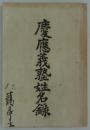 慶應義塾姓名録